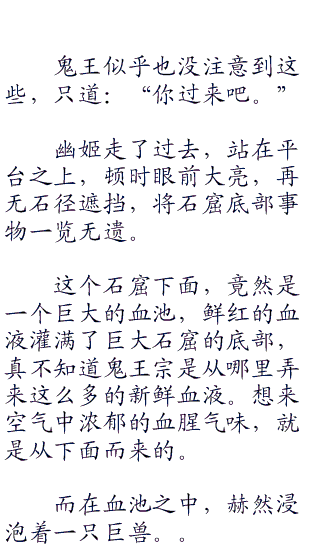 鬼王似乎也没注意到这
些，只道：“你过来吧。”
幽姬走了过去，站在平
台之上，顿时眼前大亮，再
无石径遮挡，将石窟底部事
物一览无遗。
这个石窟下面，竟然是
一个巨大的血池，鲜红的血
液灌满了巨大石窟的底部，
真不知道鬼王宗是从哪里弄
来这么多的新鲜血液。想来
空气中浓郁的血腥气味，就
是从下面而来的。
而在血池之中，赫然浸
泡着一只巨兽。。